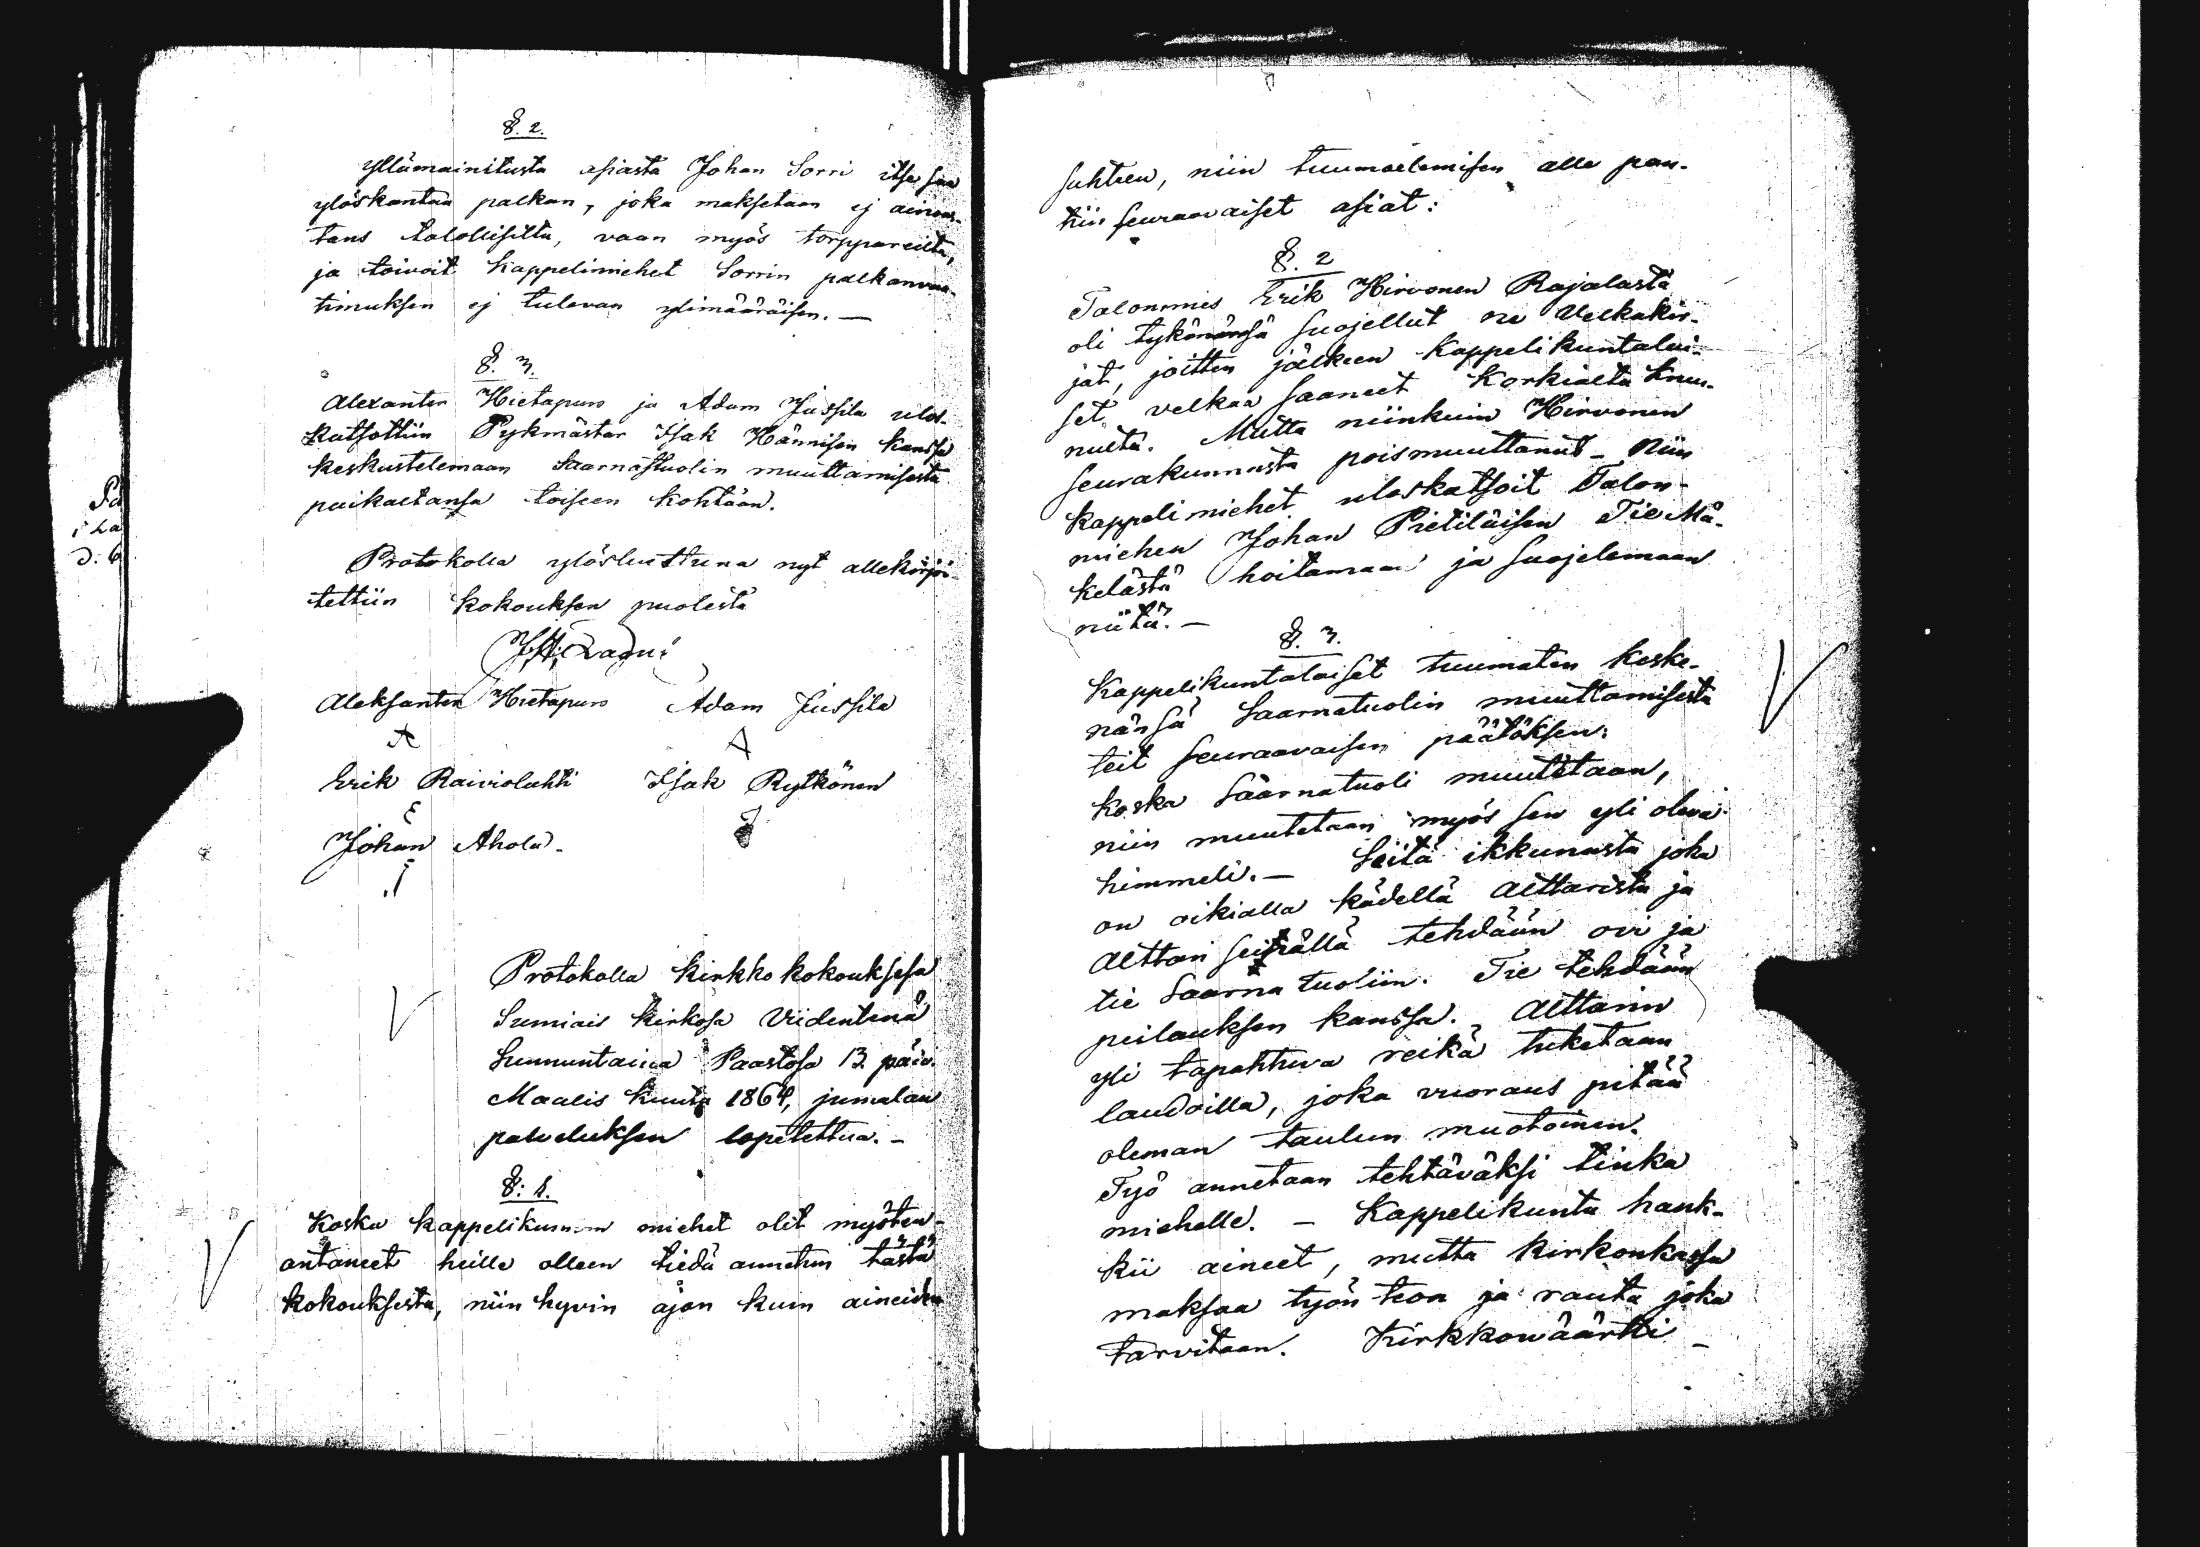 §. 2.
Yllämainitusta asiasta Johan Sorri itse saa
ylöskantaa palkan, joka maksetaan ej ainoas-
tans talollisilta, vaan myös torppareilta,
ja toivoit kappelimiehet Sorrin palkanvaa-
timuksen ej tulevan ylimääräisen. —
§. 3.
Alexanter Hietapuro ja Adam Jussila ulos-
katsottiin Pykmästar Isak Hännisen kanssa
keskustelemaan Saarnastuolin muuttamisesta
paikaltansa toiseen kohtaan.
Protokolla ylösluettuna nyt allekirjoi-
tettiin kokouksen puolesta
Aleksanter Hietapuro Adam Jussila
A A
Erik Raiviolahti Isak Rytkönen
E
Johan Ahola.
J
Protokolla kirkko kokouksesa
Sumiais kirkosa Viidentenä
Sunnuntaina Paastosa 13. päiv.
Maalis kuuta 1864, jumalan
palveluksen lopetettua. —
§: 1.
Koska kappelikunnan miehet olit myöten-
antaneet heille olleen tiedä annetun tästä
kokouksesta, niin hyvin ajan kuin aineiden
suhteen, niin tuumaelemisen alle pan-
tiin seuraavaiset asiat:
§. 2
Talonmies Erik Hirvonen Rajalasta
oli tykönänsä suojellut ne Velkakir-
jat, joitten jälkeen Kappelikuntalai-
set velkaa saaneet Korkialta kruu-
nulta. Mutta niinkuin Hirvonen
seurakunnasta poismuuttanut — niin
kappelimiehet uloskatsoit Talon-
miehen Johan Pietiläisen Tie Mä-
kelästä hoitamaan ja suojelemaan
niitä. —
§. 3.
Kappelikuntalaiset tuumaten keske-
nänsä Saarnatuolin muuttamisesta
teit seuraavaisen päätöksen:
Koska Saarnatuoli muutetaan,
niin muutetaan myös sen yli oleva
himmeli. — Siitä ikkunasta joka
on oikialla kädellä Alttarista ja
Alttari seinällä tehdään ovi ja
tie Saarna tuoliin. Tie tehdään
peilauksen kanssa. Alttarin
yli tapahtuva reikä tuketaan
laudoilla, joka vuoraus pitää
oleman taulun muotoinen.
Työ annetaan tehtäväksi tinka
miehelle. — Kappelikunta hank-
kii aineet, mutta kirkonkassa
maksaa työn teon ja rauta joka
tarvitaan. Kirkkowäärtti —